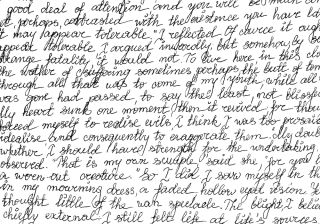 good deal of attention and you will be much
yet, perhaps, contrasted with the existence you have
it may appear tolerable." I reflected. Of course it
appear tolerable. I argued inwardly, but somehow, by
strange fatality, it would not. To live here in this
the mother of suffering sometimes, perhaps the butt of
through all that was to come of my youth, while all
was gone had passed, to say the least, not blissfully
My heart sunk one moment, then it revived for though
forced myself to realise evils, I think I was too prosaic
idealise and consequently to exaggerate them. "My doubt
whether I should have strength for the undertaking."
observed. "That is my own scruple," said she, "for you
a worn out creature." So I did. I saw myself in the
in my mourning dress, a faded, hollow eyed vision. Yet
thought little of the wan spectacle. The blight, I believed
chiefly external. I still felt life at life's sources